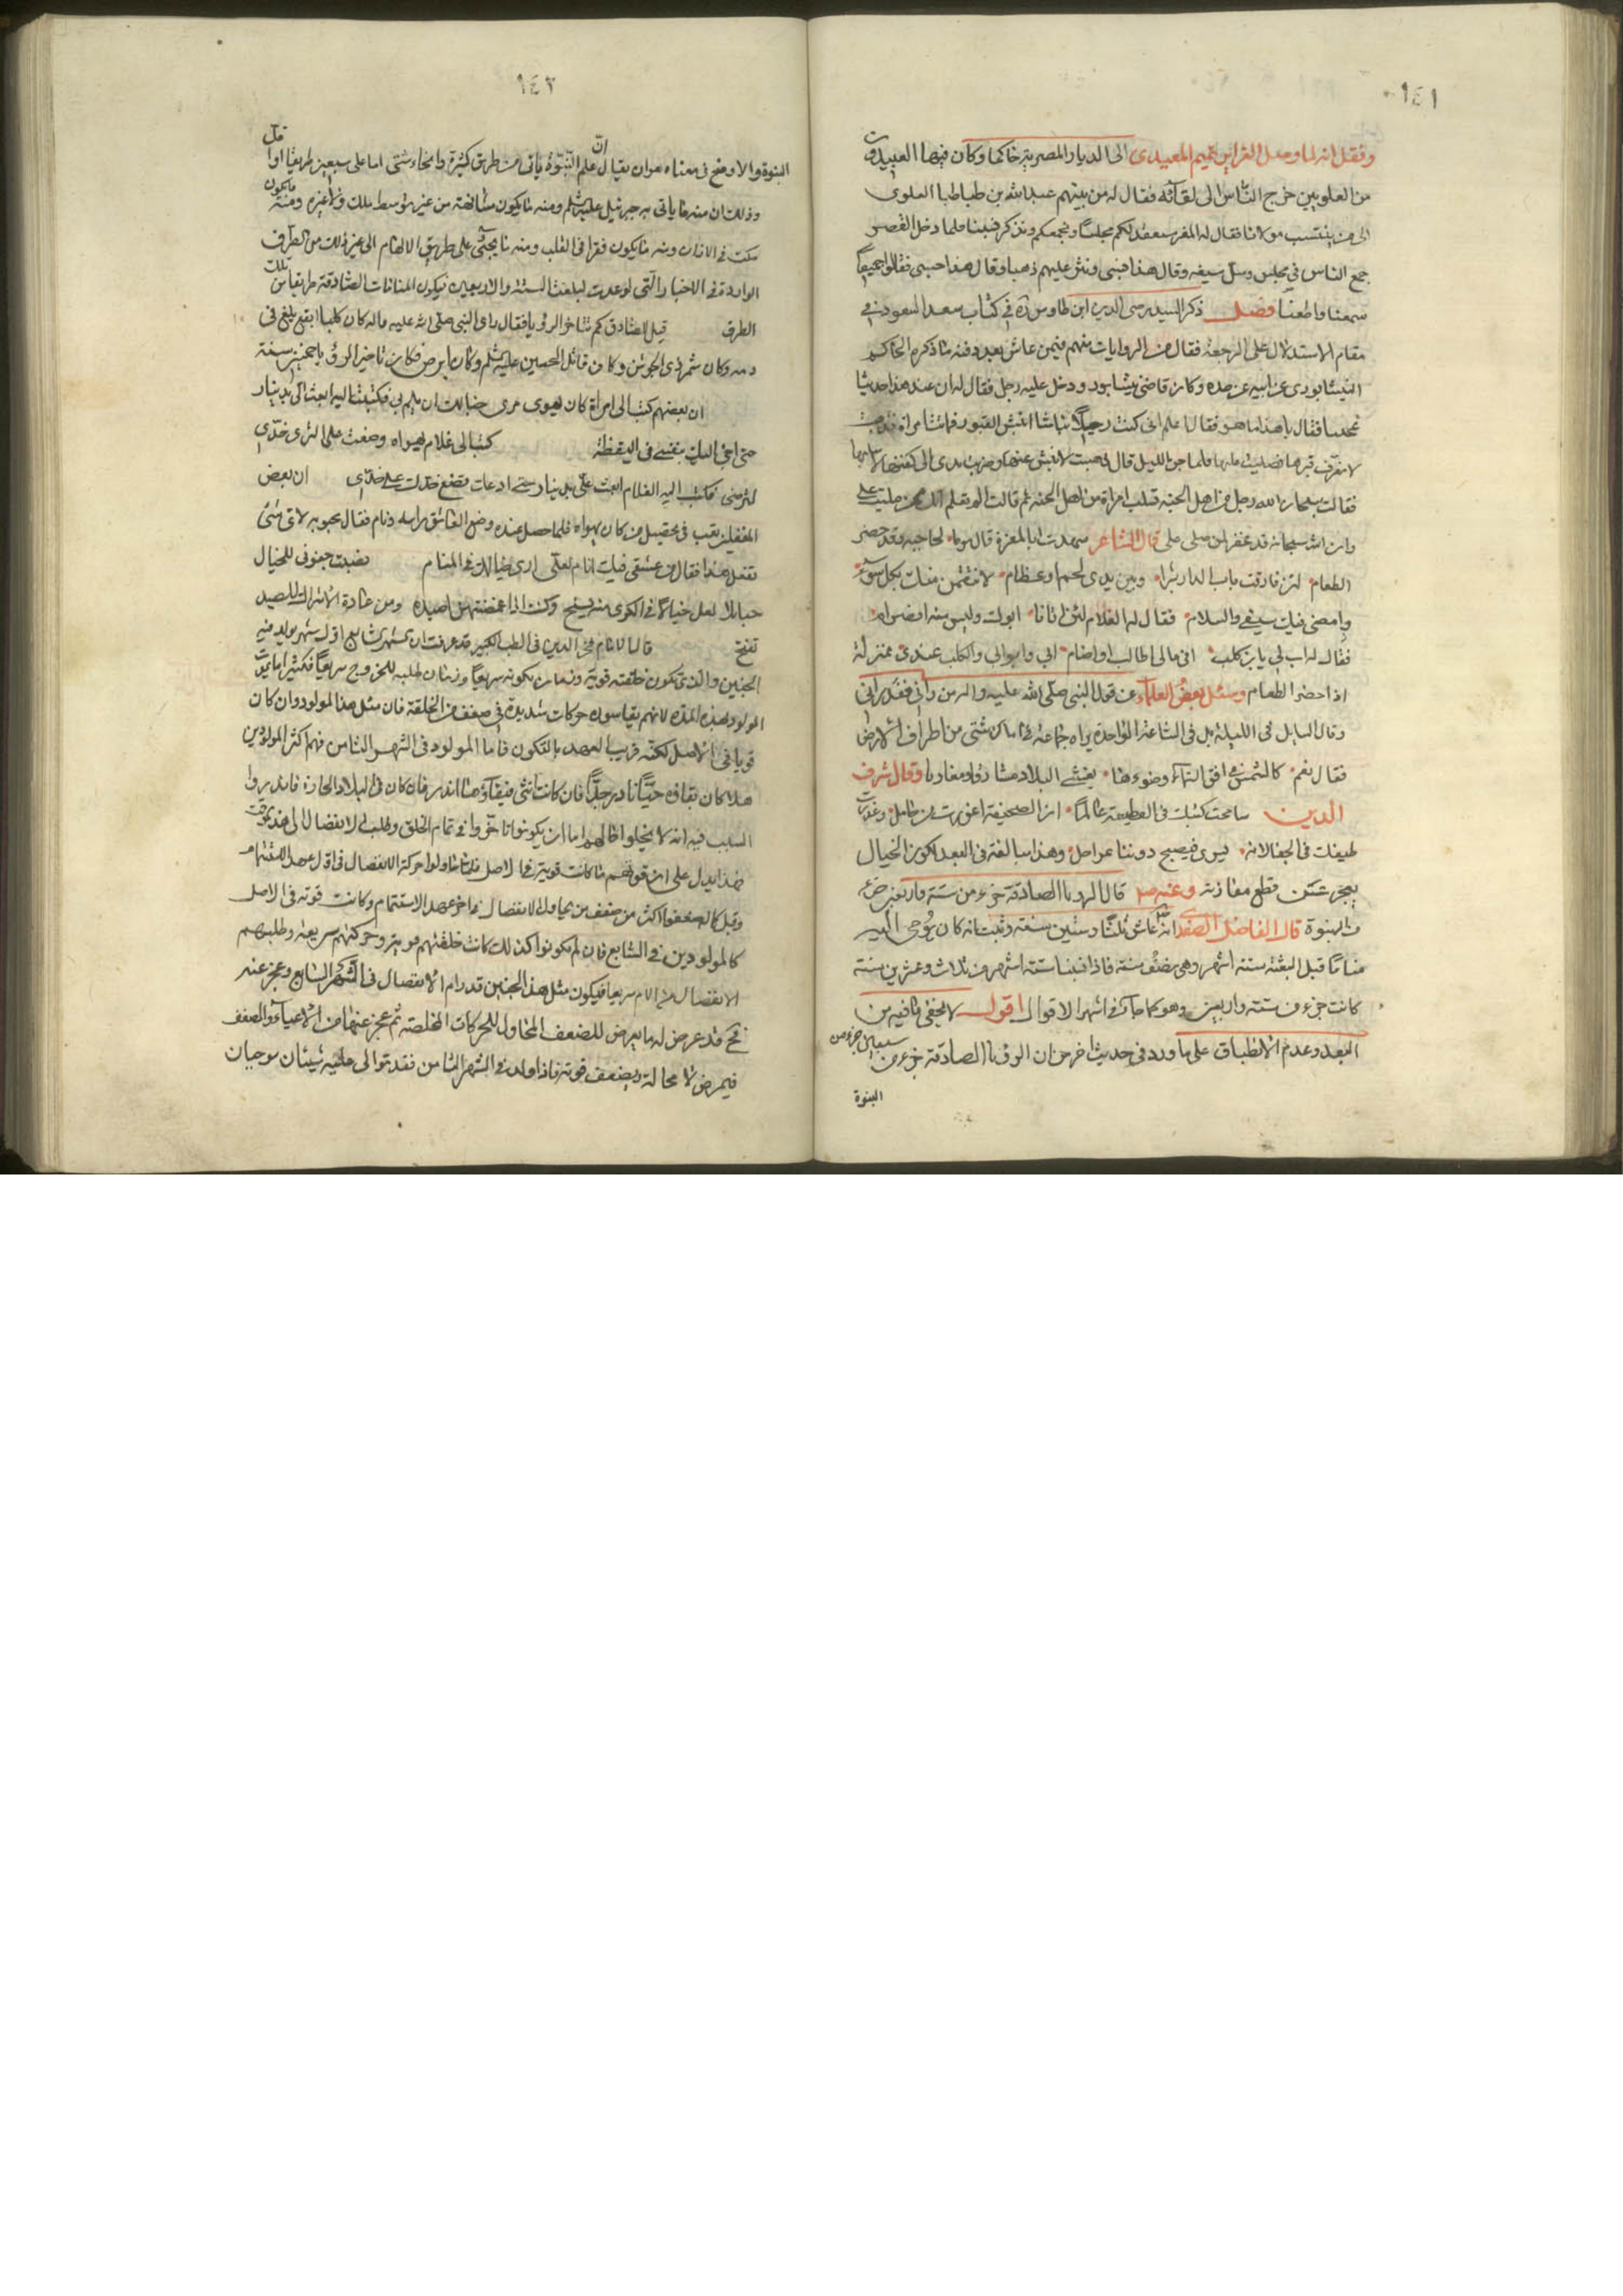 ١٤١
ونقل انه لما وصل المعز ابن تميم المعيدى الى الديار المصرية حاكما وكان فيها العبيديون
من العلويين خرج الناس الى لقائه فقال له من بينهم عبد الله بن طباطبا العلوى
الى من ينتسب مولانا فقال له المعز سنعقد لكم مجلسا ونجمعكم ونذكر نسبنا فلما دخل القصر
جمع الناس في مجلس وسل سيفه وقال هذا نسبى ونثر عليهم ذهبا وقال هذا حسبى فقالوا جميعا
سمعنا واطعنا فصل ذكر السيد رضى الدين ابن طاوس ره في كتاب سعد السعود في
مقام الاستدلال على الرجعة فقال من الروايات منهم فيمن عاش بعد دفنه ما ذكره الحاكم
النيشابورى عن ابيه عن جده وكان قاضى نيشابور ودخل عليه رجل فقال له ان عند هذا حديثا
عجيبا فقال يا هذا ما هو فقال اعلم انى كنت رجلا نباشا انبش القبور فماتت امراة فذهبت
لاعرف قبرها فصليت عليها فلما جن الليل قال ذهبت لانبش عنها وضربت يدى الى كفنها لاسلبها
فقالت سبحان الله رجل من اهل الجنة تسلب امراة من اهل الجنة ثم قالت الم تعلم انك ممن صليت على
وان الله سبحانه قد غفر لمن صلى على قال الشاعر سهدت ابا المعزة قال يوما لحاجبه وقد حضر
الطعام لئن فارقت باب الدار شبرا وبين يدى لحم او عظام لانتقمن منك بكل سوء
وامضى فيك سيفى والسلام فقال له الغلام لئن اتانا ابوك وليس منه
فقال له اب لى يابن كلب انى مالى اطالب او اضام ابى وابو ابى والكلب عندى بمنزلة
اذا حضر الطعام وسئل بعض العلماء عن قول النبى صلى الله عليه واله من رانى فقد رانى
وقال السايل في الليلة بل في الساعة الواحدة يراه جماعة في اماكن شتى من اطراف الارض
فقال نعم كالشمس في افق السماء وضوءها يغشى البلاد مشارقا ومغاربا وقال شرف
الدين سامحت كتبك في القطيعة عالما ان الصحيفة اعوزت من حامل وعذرت
طيفك في الجفا لانه يسرى فيصبح دوننا بمراحل وهذا مبالغة في البعد لكون الخيال
يعجز عن قطع مفازته وعنه ص قال الرويا الصادقة جزء من ستة واربعين جزء
من النبوة قال الفاضل الصفدى انه عاش ثلثا وستين سنة وثبت انه كان يوحى اليه
مناما قبل البعثة ستة اشهر وهى نصف سنة فاذا نسبنا ستة اشهر من ثلاث وعشرين سنة
كانت جزء من ستة واربعين وهو كما جاء في اشهر الاقوال اقول لا يخفى مافيه من
البعد وعدم الانطباق على ماورد في حديث اخر من ان الرؤيا الصادقة جزء من سبعين جزء من
النبوة
١٤٢
النبوة والاوضح في معناه هو ان يقال ان علم النبوة ياتى من طرق كثيرة وانحاء شتى اما على سبعين طريقا او اقل
وذلك ان منه ما ياتى به جبرئيل عليه السلم ومنه ما يكون مشافهة من غير توسط ملك ولا غيره ومنه ما يكون
نكت في الاذان ومنه ما يكون نقرا في القلب ومنه ما يجئ على طريق الالهام الى غير ذلك من الطرف
الواردة في الاخبار التى لو عدت لبلغت الستة والاربعين فيكون المنامات الصادقة طريقا من تلك
الطرق قيل للصادق كم تتاخر الرؤيا فقال راى النبى صلى الله عليه واله كان كلبا ابقع يلغ في
دمه وكان شمر ذى الجوشن وكان قاتل الحسين عليه السلم وكان ابرص فكان تاخير الرؤيا خمسين سنة
ان بعضهم كتب الى امراة كان يهوى مرى خيالك ان يلم بى فكتبت اليه ابعث الى بدينار
حتى اجئ اليك بنفسى في اليقظة كتب الى غلام يهواه وضعت على الثرى خدى
لترضى فكتب اليه الغلام ابعث على بدينار حتى ادعك تضع خدك على خدى ان بعض
المغفلين تعب في تحصيل من كان يهواه فلما حصل عنده وضع العاشق راسه ونام فقال محبوبه لاى شئ
تفعل هذا فقال من عشقى فيك انام لعلى ارى خيالك في المنام نصبت جفونى للخيال
حبائلا لعل خيالا في الكرى منه يسنح وكنت اذا غمضتهن لصيده ومن عادة الاشراك للصيد
تفتح قال الامام فخر الدين في الطب الكبير قد عرفت ان الشهر السابع اول شهر يولد فيه
الجنين والذى تكون خلقته قوية وزمان تكونه سريعا وزمان طلبه للخروج سريعا فكثيرا ما يموت
المولود لهذه المدة لانهم يقاسون حركات شديدة في ضعف من الخلقة فان مثل هذا المولود وان كان
قويا في الاصل لكنه قريب العهد بالتكون فاما المولود في الشهر الثامن فهم اكثر المولودين
هلاكا ن بقاؤه حيا نادر جدا فان كانت انثى فبقاؤها اندر فان كان في البلاد الحارة
السبب فيه انه لا يخلوا حالهم اما ان يكونوا تاخروا في تمام الخلق وطلب الانفصال الى هذا الوقت
فهذا يدل على ان قوتهم ما كانت قوية في الاصل فلما حاولوا حركة الانفصال في اول عهد الاستتمام
وقبل كانت
كالمولودين في السابع فان لم يكونوا كذلك كانت خلقتهم قوية وحركتهم سريعة وطلبهم
الانفصال سريعا فيكون مثل هذا الجنين قد رام الانفصال في الشهر السابع وعجز عنه
قد عرض له ما يعرض للضعف المحاول للحركات المخلصة ثم عجز عنها من الاعياء والضعف
فيمرض لا محالة ويضعف قوته فاذا ولد في الشهر الثامن فقد توالى عليه شيئان موجبان